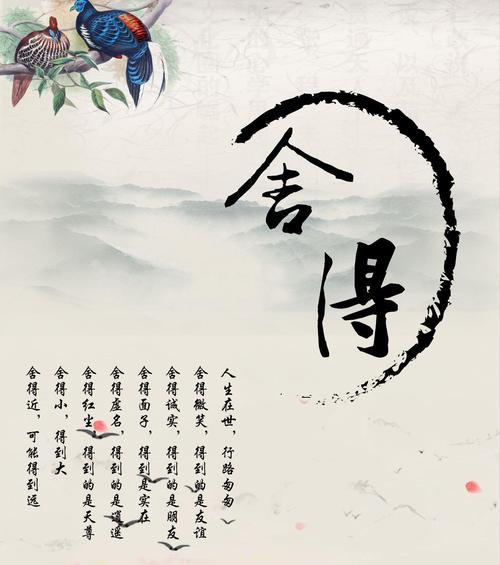 舍得
人生在世，行路匆匆
舍得微笑，得到的是友谊
舍得诚实，得到的是朋友
舍得面子，得到是实在
舍得虚名，得到的是逍遥
舍得红尘，得到的是天尊
舍得小，得到大
舍得近，可能得到远